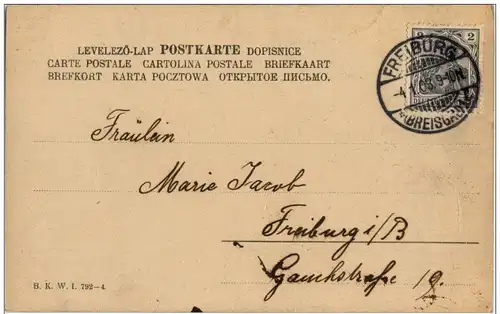 LEVELEZŐ-LAP POSTKARTE DOPISNICE
CARTE POSTALE CARTOLINA POSTALE BRIEFKAART
BREFKORT KARTA POCZTOWA ОТКРЫТОЕ ПИСЬМО.
2 2
FREIBURG
(BREISGAU)
Fräulein
Marie Jacob
Freiburg i/B
Gauchstraße 19.
B. K. W. I. 792-4.